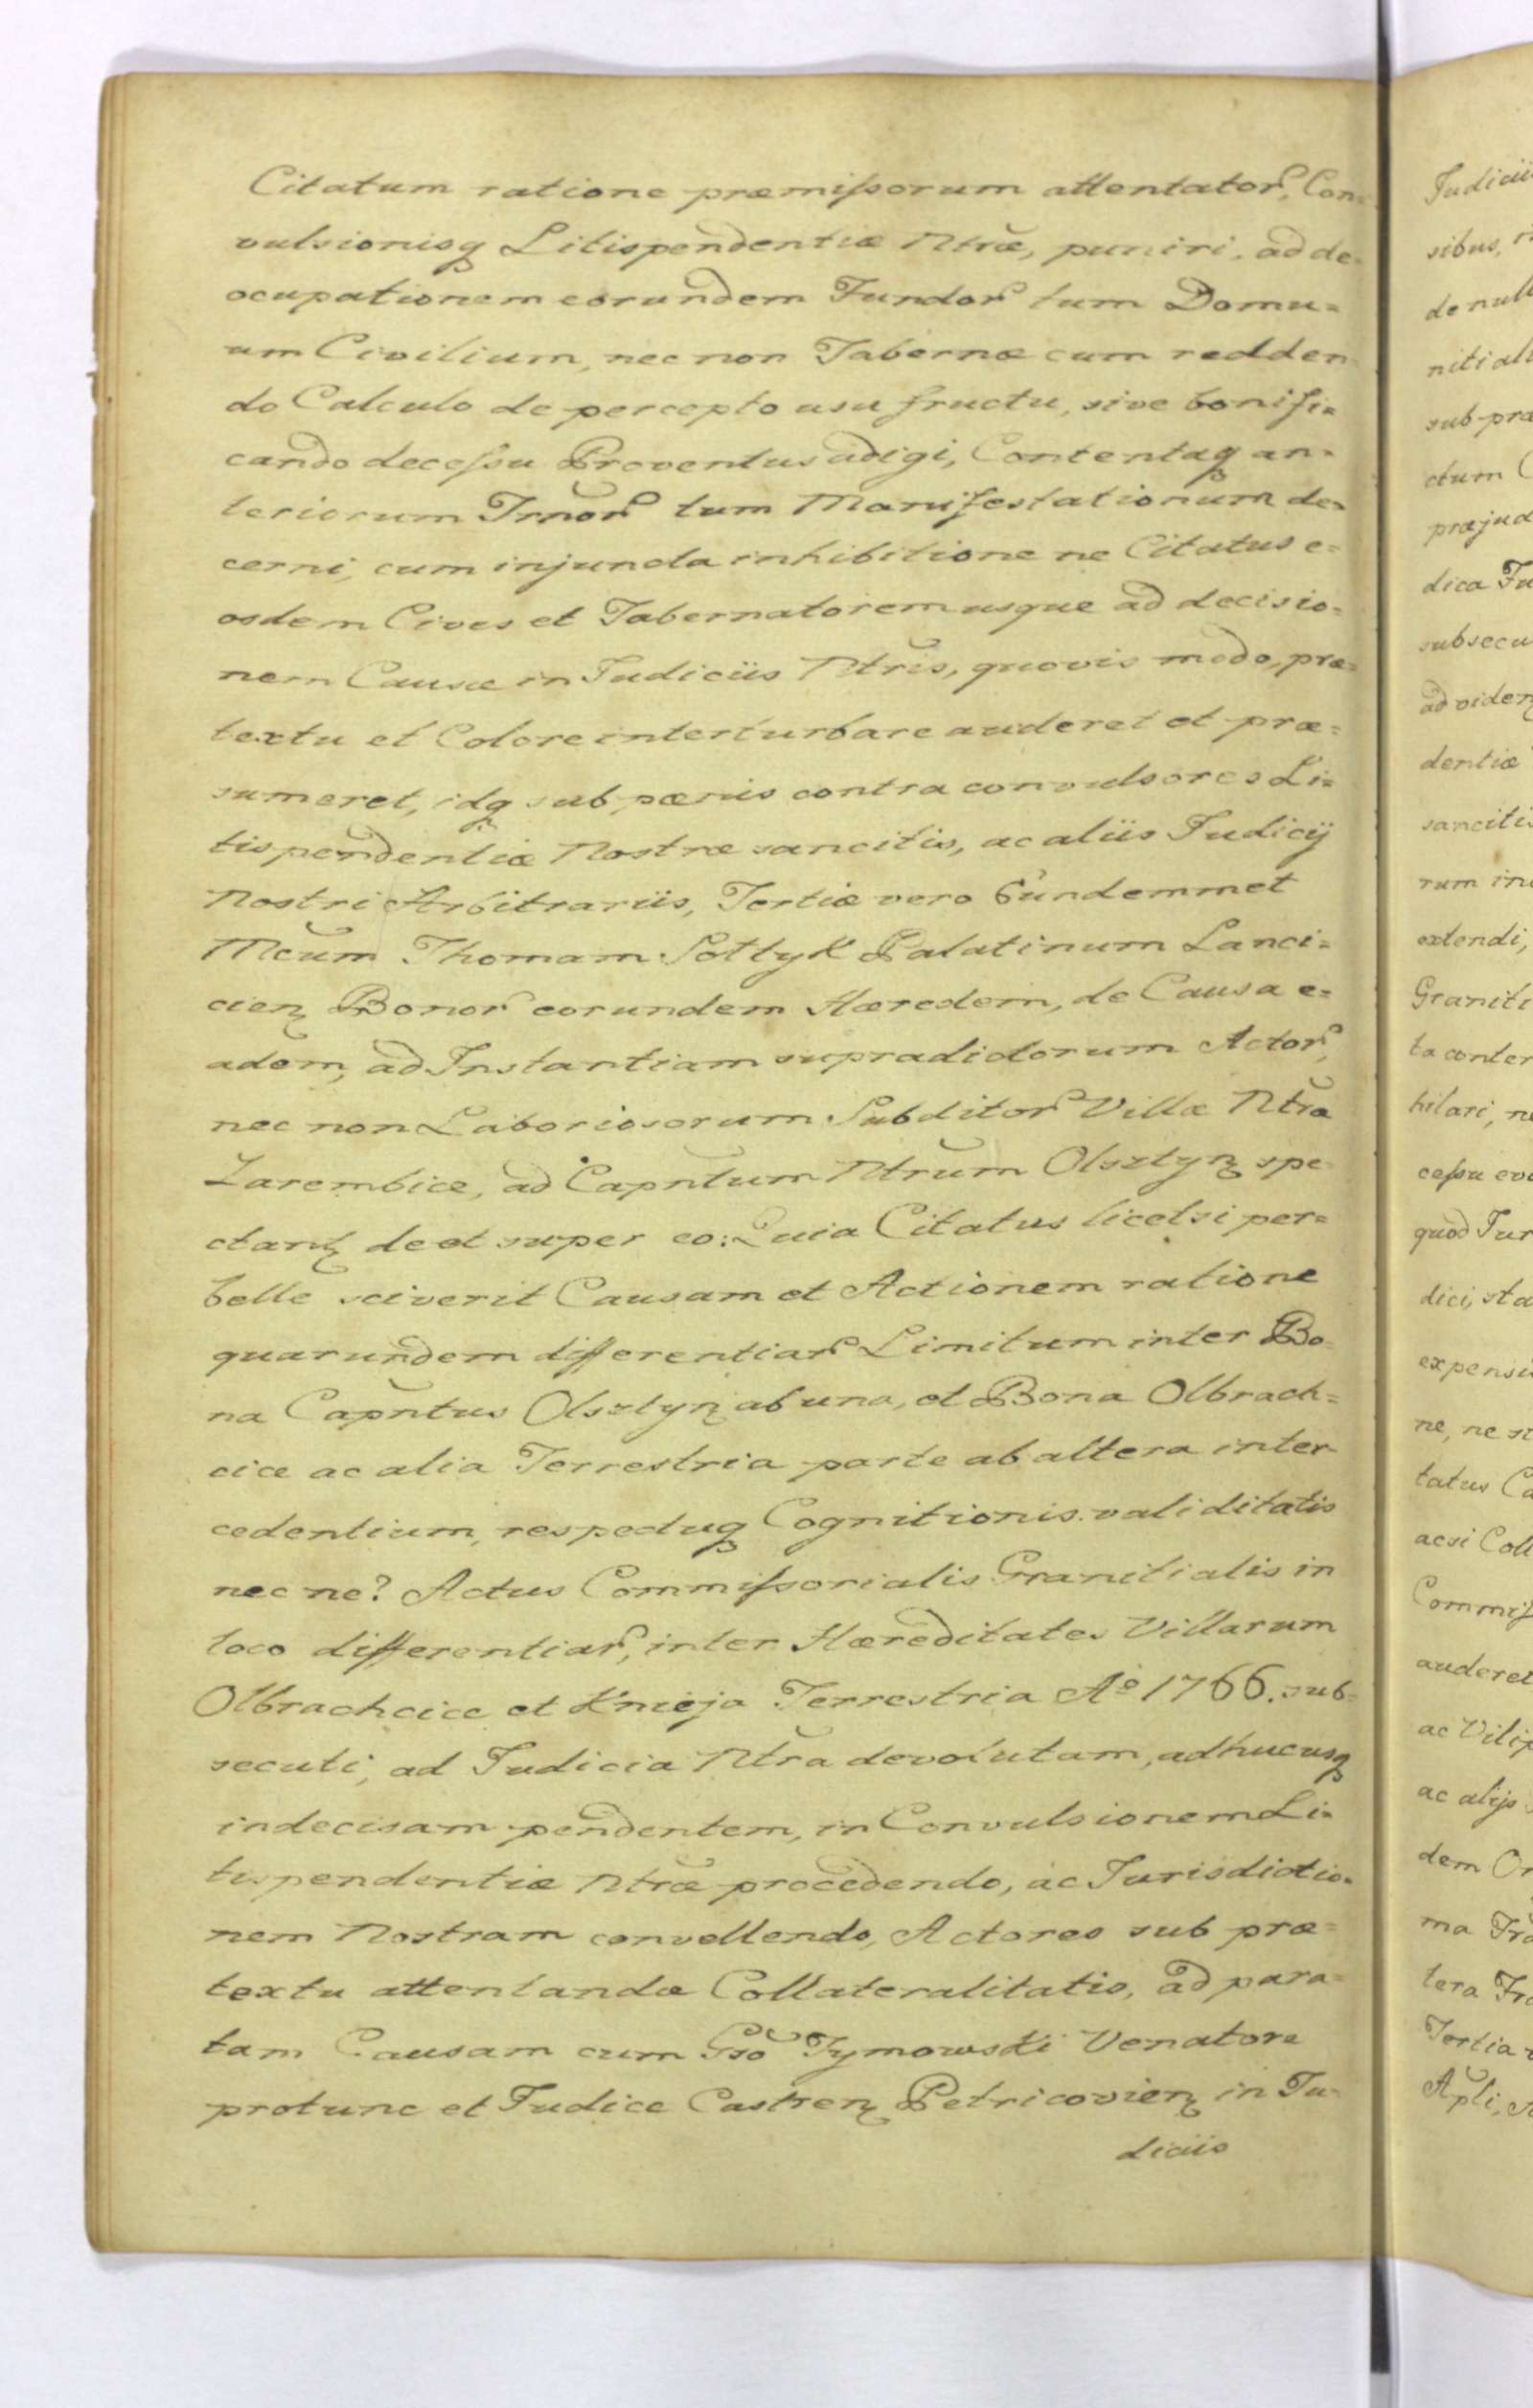 Citatum ratione præmissorum attentator, Con=
vulsionisq Litispendentiæ Ntræ, puniri, ad de=
ocupationem eorundem Fundor tum Domu=
um Civilium, nec non Tabernæ cum redden
do Calculo de percepto usu fructu, sive bonifi=
cando decessu Proventus adigi, Contentaq an=
teriorum Trnor tum Manifestationum de=
cerni, cum injuncta inhibitione ne Citatus e=
osdem Cives et Tabernatorem usque ad decisio=
nem Causæ in Judiciis Ntris, quovis modo, præ=
textu et Colore interturbare auderet et præ=
sumeret, idq sub pænis contra convulsores Li=
tispendentiæ Nostræ sancitis, ac aliis Judicij
Nostri Arbitrariis, Tertiæ vero Eundemmet
Mcum Thomam Sołtyk Palatinum Lanci=
cien Bonor eorundem Hæredem, de Causa e=
adem, ad Instantiam supradictorum Actor,
nec non Laboriosorum Subditor Villæ Ntra
Zarembice, ad Capntum Ntrum Olsztyn spe
ctant de et super eo: Quia Citatus licet si per=
belle sciverit Causam et Actionem ratione
quarundem differentiar Limitum inter Bo=
na Capntus Olsztyn ab una, et Bona Olbrach=
cice ac alia Terrestria parte ab altera inter
cedentium, respectuq Cognitionis validitatis
nec ne? Actus Commissorialis Granitialis in
loco differentiar, inter Hæreditates Villarum
Olbrachcice et Knieja Terrestria Aº 1766. sub=
secuti, ad Judicia Ntra devolutam, adhucusq
indecisam pendentem, in Convulsionem Li=
tispendentiæ Ntræ procedendo, ac Jurisdictio=
nem Nostram convellendo, Actores sub præ=
textu attentandæ Collateralitatis, ad para=
tam Causam cum Gso Tymowski Venatore
protunc et Judice Castren Petricovien in Ju=
diciis
Judicii
sibus,
de null
niti ali
sub præ
ctum
præjud
dica
subsecu
ad viden
dentiæ
sanciti
rum
extendi,
Graniti
ta conten
hilari,
cessu
quod Jur
dici, sta
expensi
ne, ne
tatus
acsi Coll
Commiss
auderet
ac Vilip
ac alijs
dem
ma
tera
Tertia